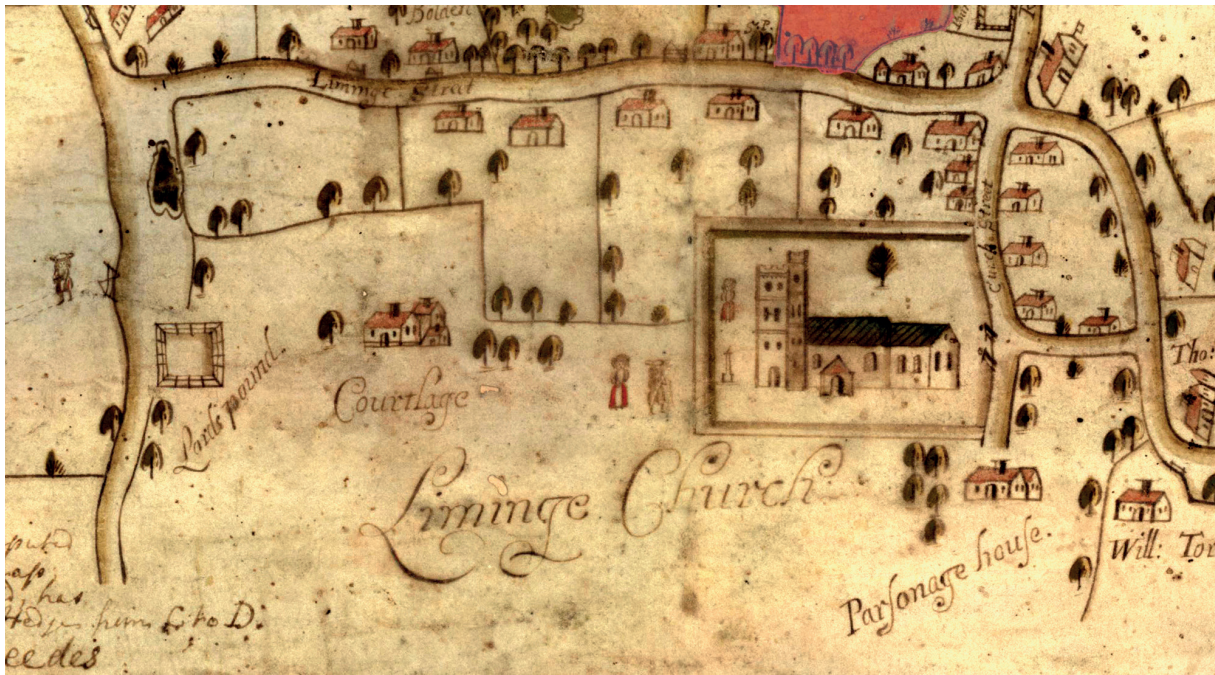 Bolden
Liminge Street
Church Street
Tho:
Lards pound.
Courtlage
Liminge Church
Parsonage house.
Will: Tor
puted
has
Hedges from C to D:
eedes